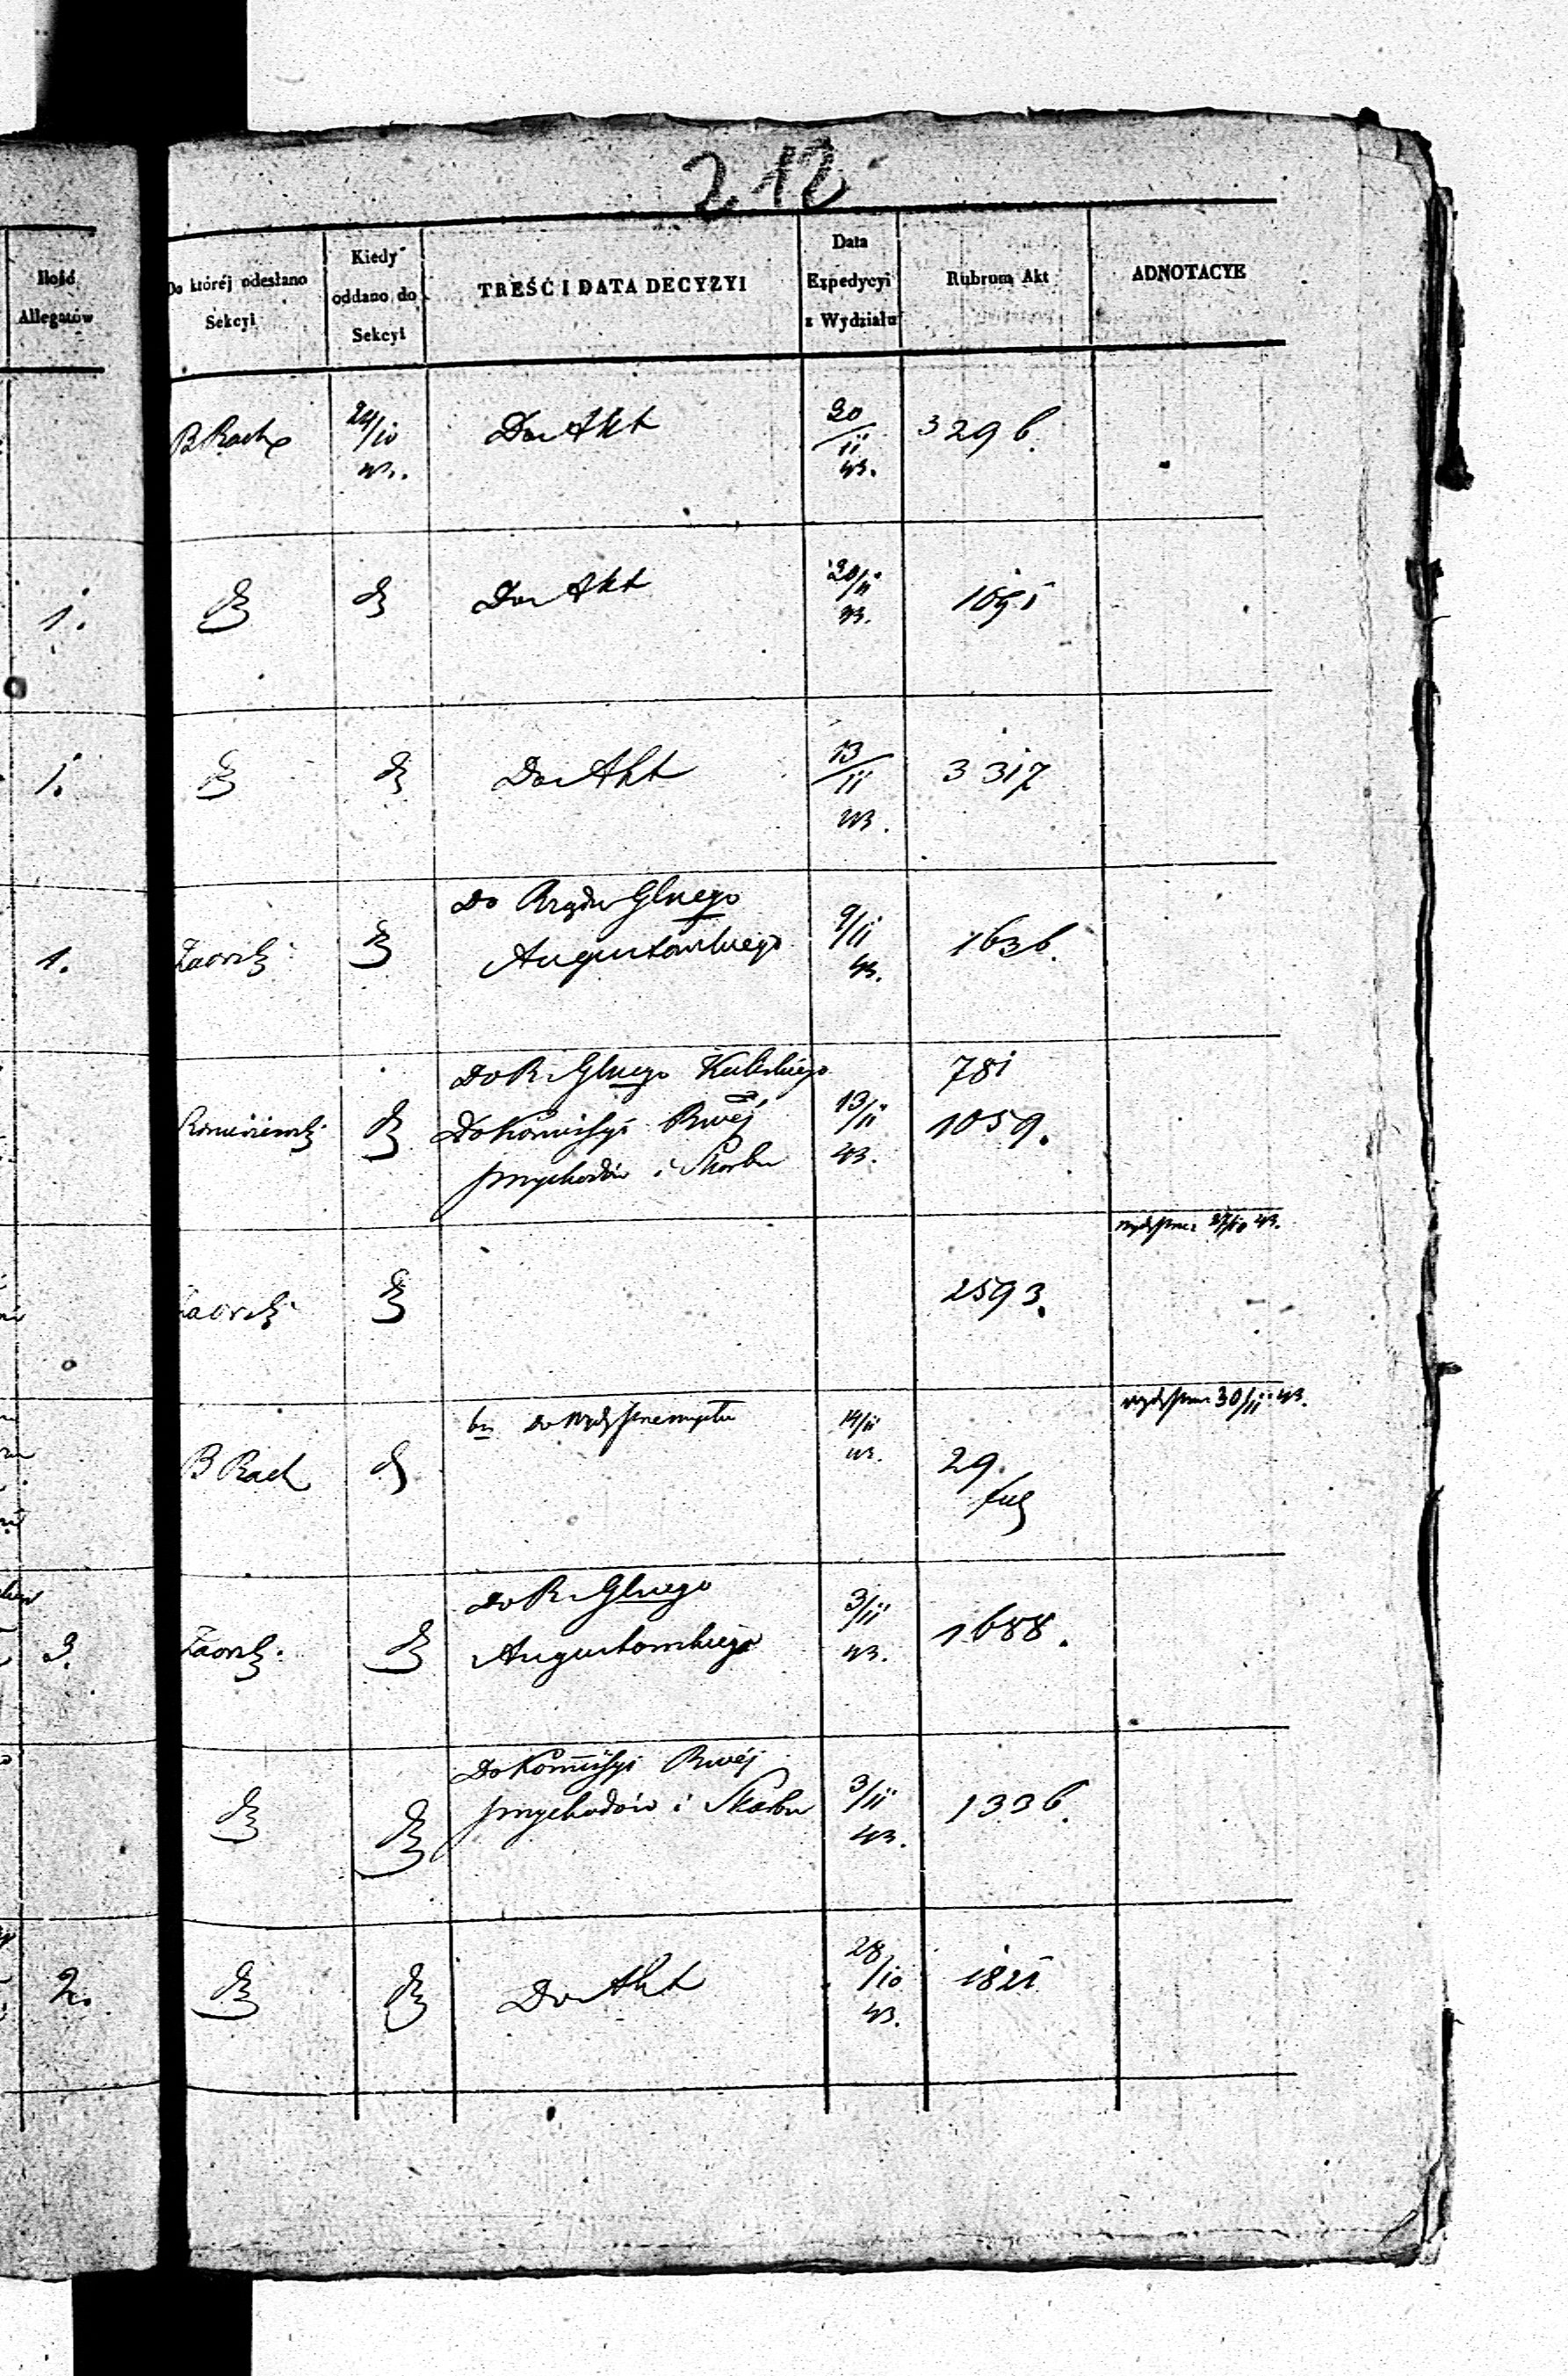 212
Ilość Allegatów
Do któréj odesłano Sekcyi
Kiedy oddano do Sekcyi
TREŚĆ I DATA DECYZYI
Data Expedycyi z Wydziału
Rubrum Akt
ADNOTACYE
B Rach 24/10 43. Do Akt 20/11 43. 329 b.
1. Do Akt 20/11 43.
1. Do Akt 13/11 43. 3317
1. Zaorski Do Rządu Glnego
Augustowskiego 9/11 43. 1636.
Do R. Glnego Kaliskiego 781
Do Komisyi Rwéj 13/11 43. 1059.
Przychodów i Skarbu
27/10 43.
Zaorski 2593.
Do Wydz Przemysłu 14/11 43. 30/11 43.
B Rach 29.
Do R. Glnego
3. Zaorski Augustowskiego 3/11 43. 1688.
Do Komisyi Rwéj
Przychodów i Skarbu 3/11 43. 1336.
2. Do Akt 28/10 43. 1821